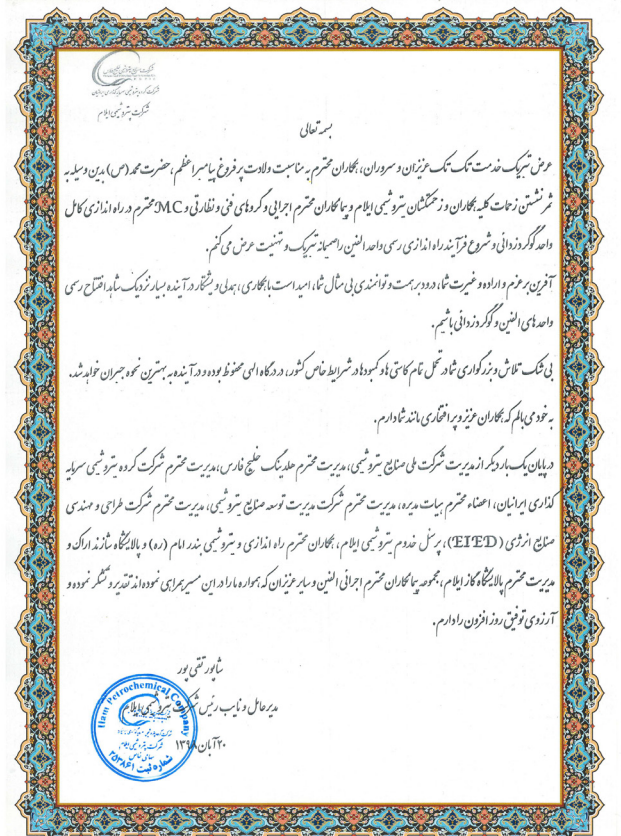 شرکت پتروشیمی ایلام
بسمه تعالی
عرض تبریک خدمت تک تک عزیزان و سروران، همکاران محترم به مناسبت ولادت پر فروغ پیامبر اعظم، حضرت محمد (ص) بدین وسیله به
ثمر نشستن زحمات کلیه همکاران و زحمتکشان پتروشیمی ایلام و پیمانکاران محترم اجرایی و گروههای فنی و نظارتی و MC محترم در راه اندازی کامل
واحد گوگردزدائی و شروع فرآیند راه اندازی رسمی واحد الفین را صمیمانه تبریک و تهنیت عرض می کنم.
آفرین بر عزم و اراده و غیرت شما، درود بر همت و توانمندی بی مثال شما، امید است با همکاری، همدلی و پشتکار در آینده بسیار نزدیک شاهد افتتاح رسمی
واحد های الفین و گوگردزدائی باشیم.
بی شک تلاش و بزرگواری شما در تحمل تمام کاستی ها و کمبودها در شرایط خاص کشور، در درگاه الهی محفوظ بوده و در آینده به بهترین نحوه جبران خواهد شد.
به خود می بالم که همکاران عزیز و پر افتخاری مانند شما دارم.
در پایان یک بار دیگر از مدیریت شرکت ملی صنایع پتروشیمی، مدیریت محترم هلدینگ خلیج فارس، مدیریت محترم شرکت گروه پتروشیمی سرمایه
گذاری ایرانیان، اعضاء محترم هیات مدیره، مدیریت محترم شرکت مدیریت توسعه صنایع پتروشیمی، مدیریت محترم شرکت طراحی و مهندسی
صنایع انرژی (EIED)، پرسنل خدوم پتروشیمی ایلام، همکاران محترم راه اندازی و پتروشیمی بندر امام (ره) و پالایشگاه شازند اراک و
مدیریت محترم پالایشگاه گاز ایلام، مجموعه پیمانکاران محترم اجرائی الفین و سایر عزیزان که همواره ما را در این مسیر همراهی نموده اند تقدیر و تشکر نموده و
آرزوی توفیق روز افزون را دارم.
شاپور تقی پور
مدیر عامل و نایب رئیس شرکت پتروشیمی ایلام
۲۰ آبان ۱۳۹۸
Ilam Petrochemical Company
شرکت پتروشیمی ایلام
سهامی خاص
شماره ثبت ۲۵۳۸۶۱